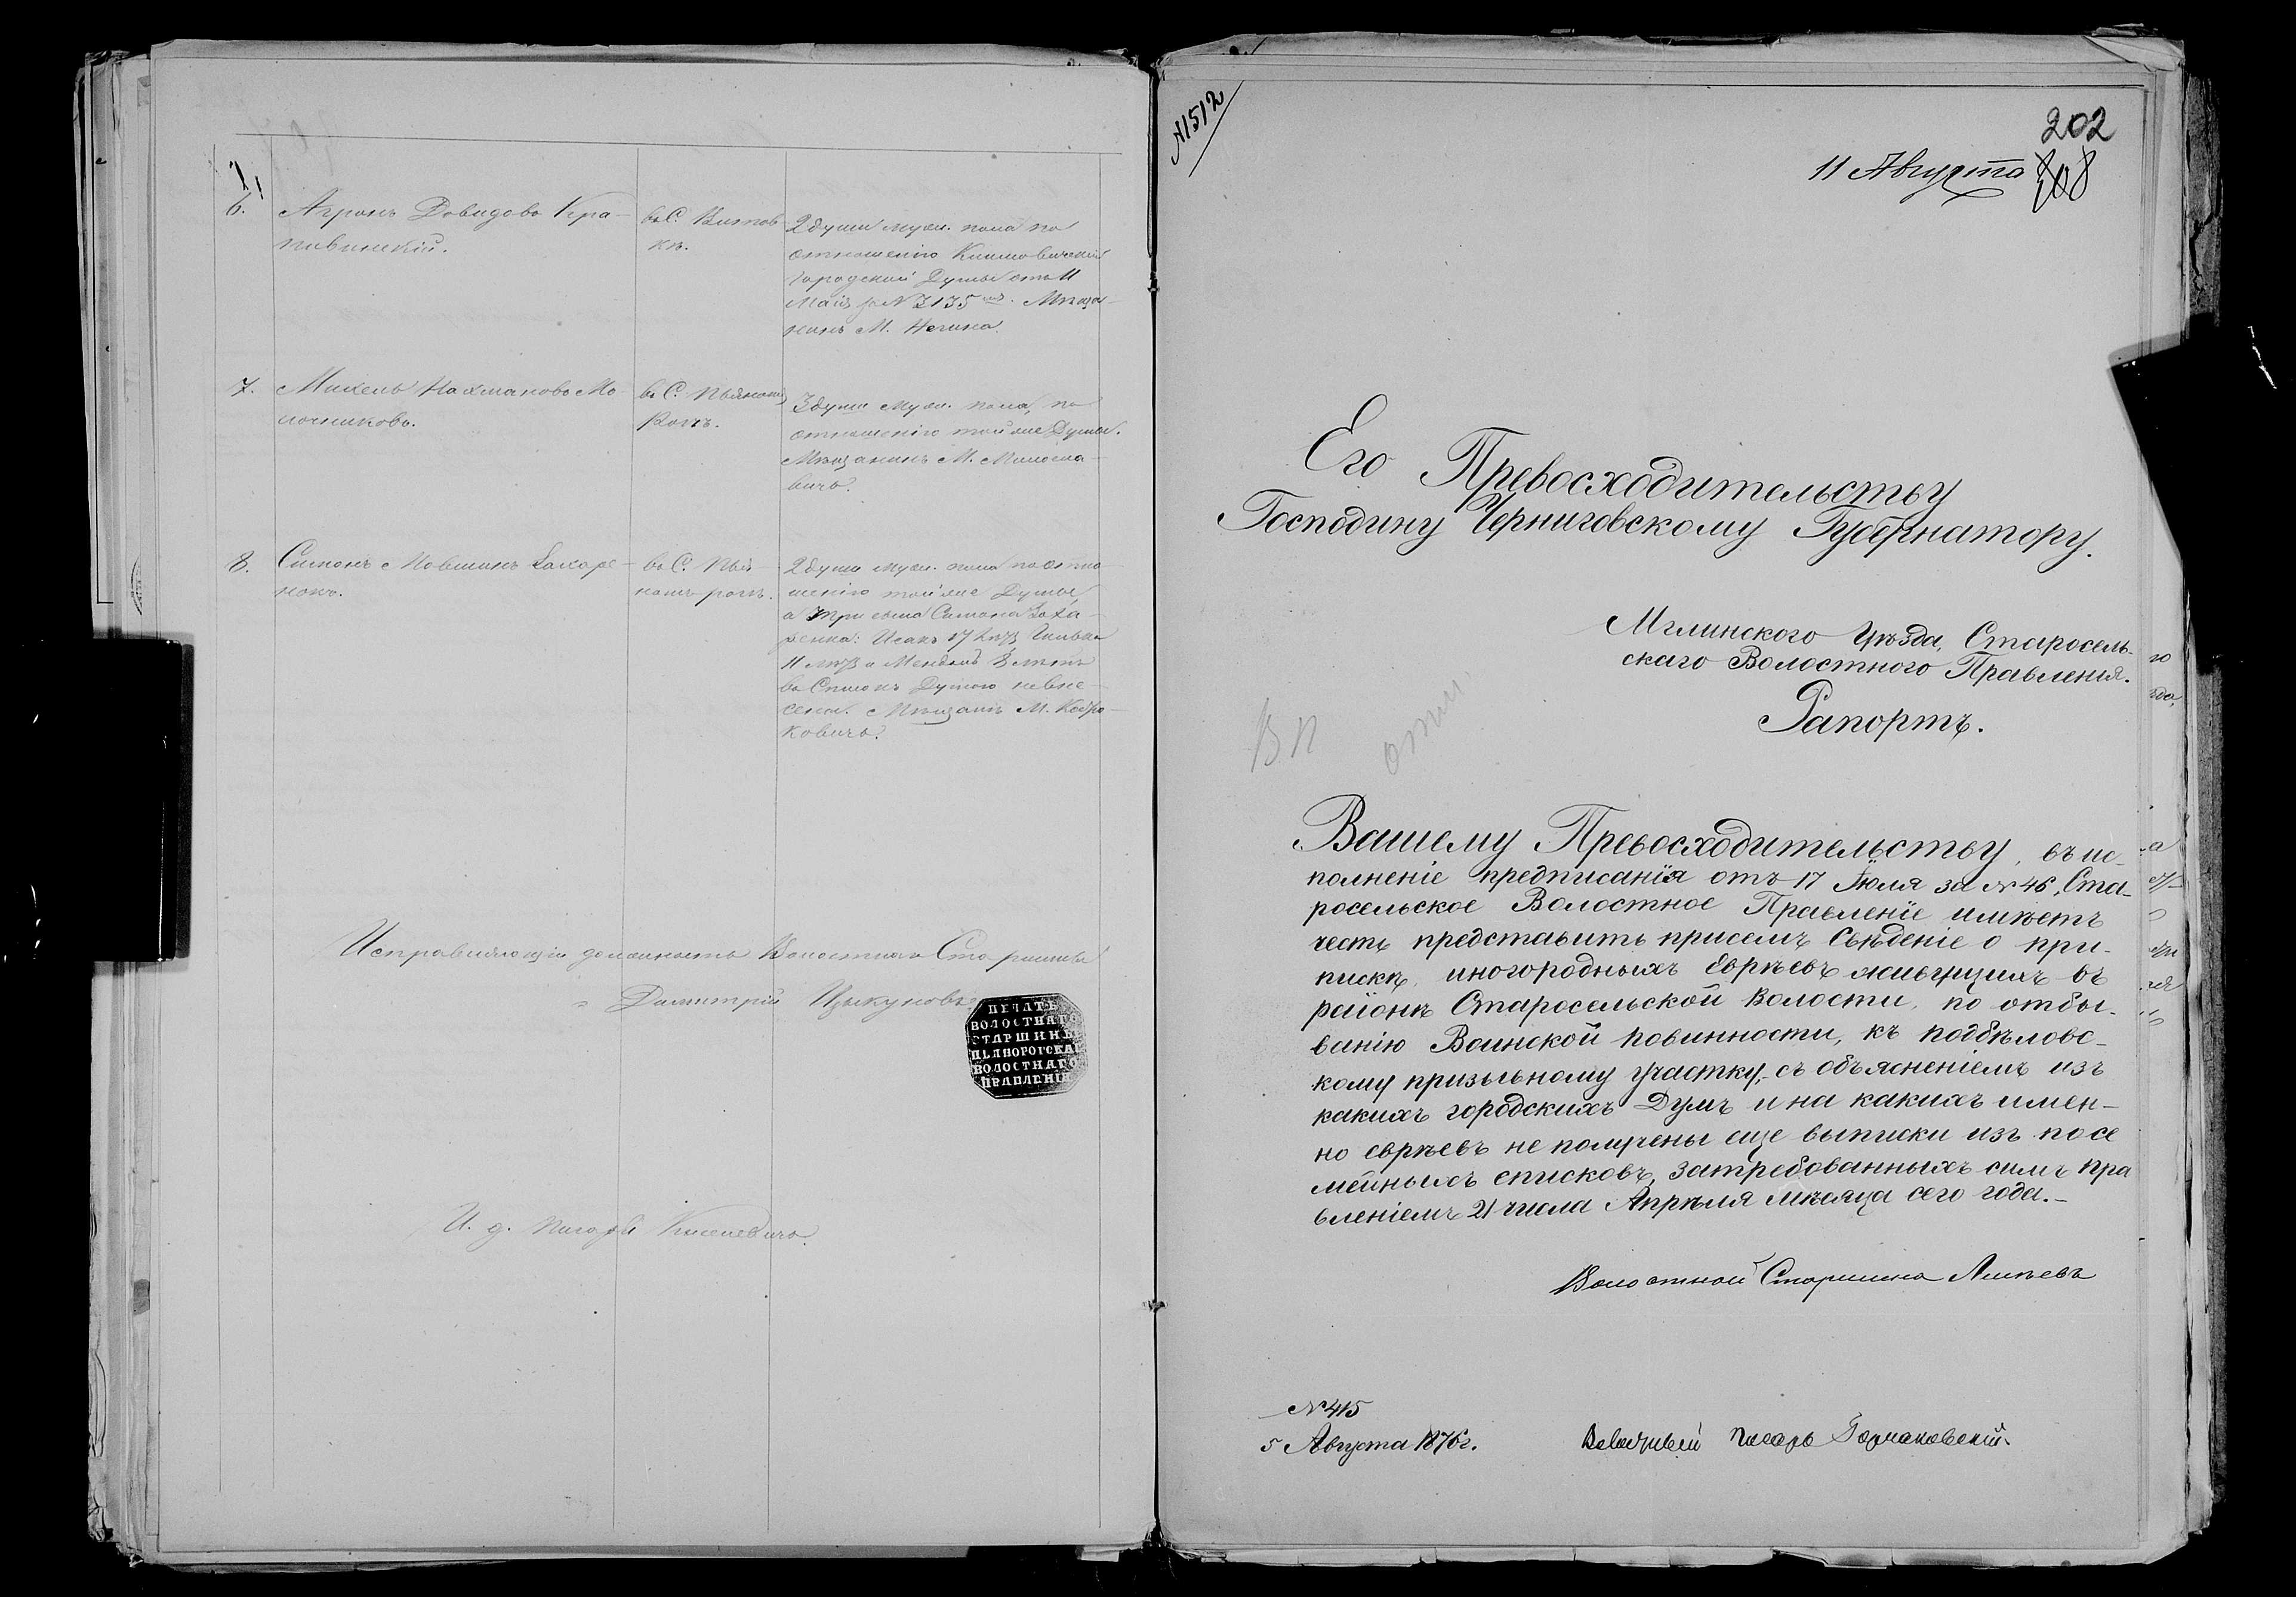 6.
Агронъ Довидовъ Кра-
пивинскій.
въ С. Витов-
кѣ.
2 души муж. пола по
отношенію Климовичской
Городской Думы отъ 11
Маія за № 3135мъ. Мѣща-
нинъ М. Негина.
7.
Михель Нахмановъ Мо-
лочниковъ.
въ С. Пьяномъ
Рогѣ.
3 души муж. пола, по
отношенію той же Думы.
Мѣщанинъ М. Милосла-
вичъ.
8.
Симонъ Мовшинъ Захаре-
нокъ.
въ С. Пья-
номъ рогѣ.
2 души муж. пола по отно-
шенію той же Думы,
а три сына Симона Заха-
ренка: Исакъ 17 лѣтъ
11 лѣтъ и Мендель 8 лѣтъ
въ Списокъ Думою невне-
сены. Мѣщане М.
Исправляющій должность Волостнаго Старшины
Димитрій Цыкуновъ
ПЕЧАТЬ
ВОЛОСТНАГО
СТАРШИНЫ
ПЬЯНОРОГСКАГО
ВОЛОСТНАГО
ПРАВЛЕНІЯ
И. д. писаря Киселевичъ.
№1512
202
11 Августа
208
Его Превосходительству
Господину Черниговскому Губернатору.
Мглинского Уѣзда, Старосель-
скаго Волостного Правления.
Рапортъ.
ВП
Вашему Превосходительству, въ ис-
полненіе предписанія отъ 17 Іюля за № 46, Ста-
росельское Волостное Правленіе имѣетъ
честь представить присемъ Свѣденіе о при-
пискѣ иногородныхъ Евреѣвъ живущихъ въ
районѣ Старосельской Волости, по отбы-
ванію Воинской повинности, къ подбѣловс-
кому призывному участку, съ объясненіемъ изъ
какихъ городскихъ Думъ и на какихъ имен-
но евреѣвъ не получены еще выписки изъ посе
мейныхъ списковъ, затребованныхъ симъ пра
вленіемъ 21 числа Апрѣля мѣсяца сего года.-
Волостной Старшина
№ 415
5 Августа 1876 г.
Писарь